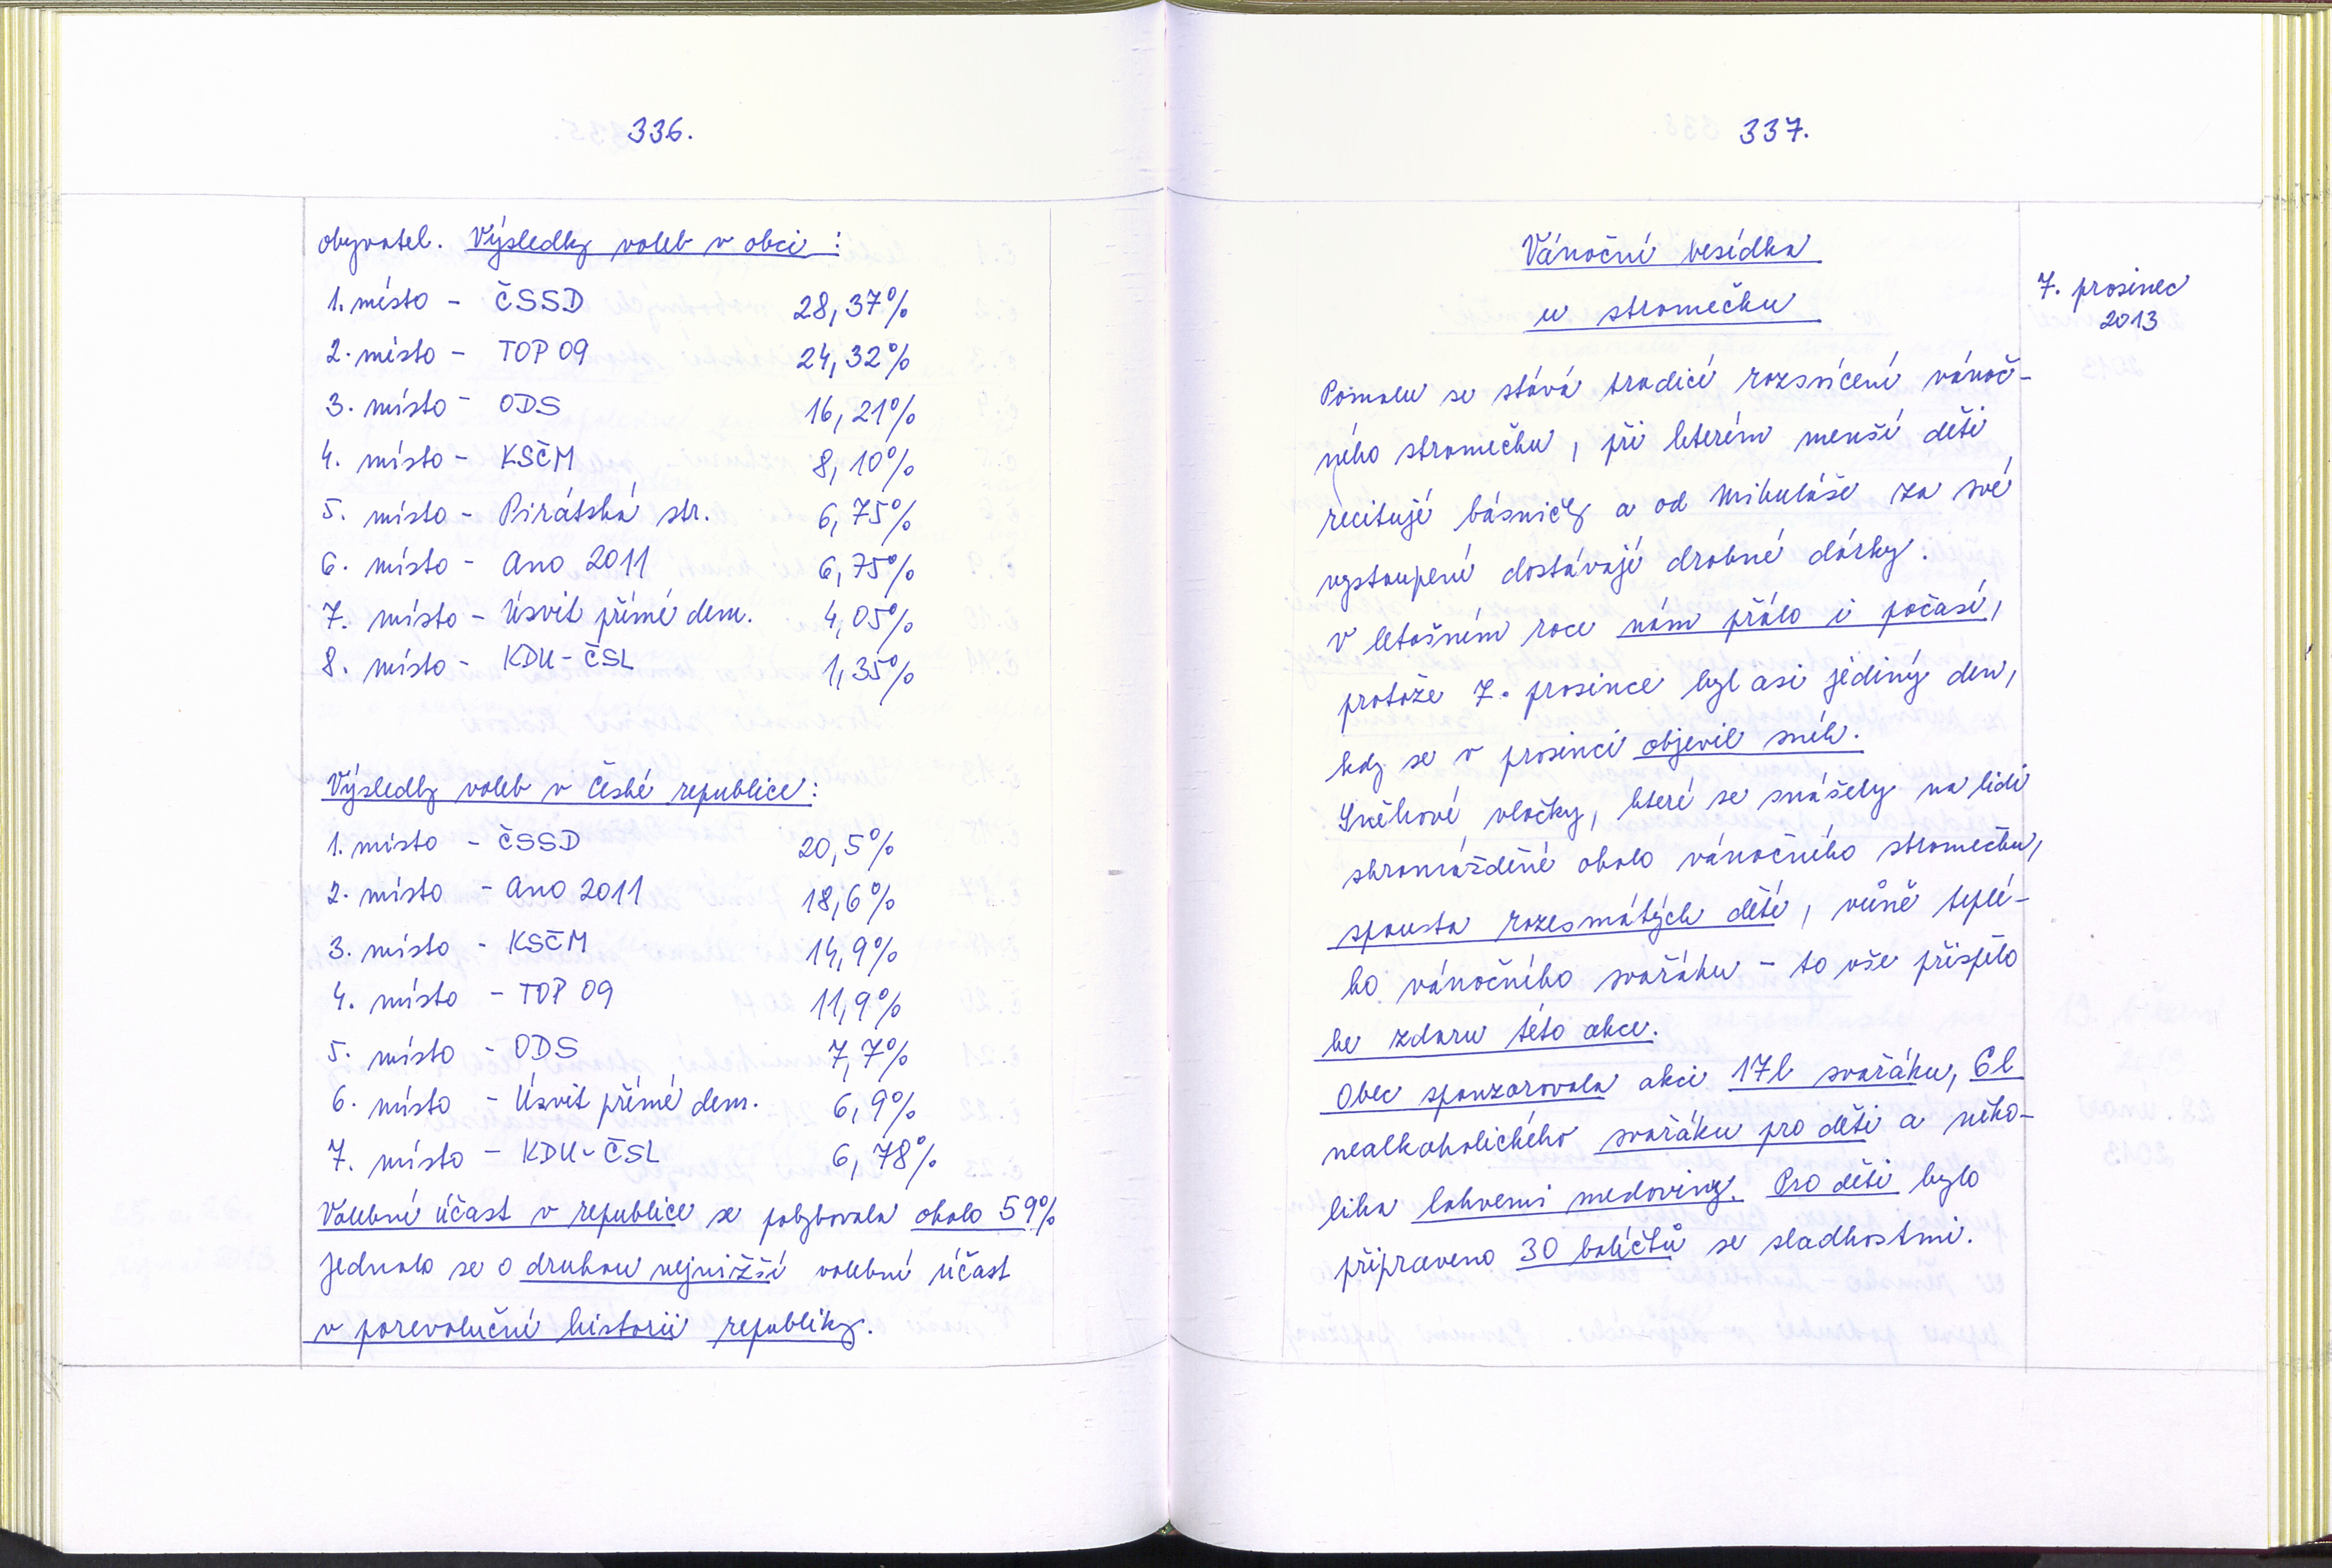 336.
obyvatel. Výsledky voleb v obci :
1. místo - ČSSD 28,37%
2. místo - TOP 09 24,32%
3. místo - ODS 16,21%
4. místo - KSČM 8,10%
5. místo - Pirátská str. 6,75%
6. místo - Ano 2011 6,75%
7. místo - Úsvit přímé dem. 4,05%
8. místo - KDU-ČSL 1,35%
Výsledky voleb v České republice :
1. místo - ČSSD 20,5%
2. místo - Ano 2011 18,6%
3. místo - KSČM 14,9%
4. místo - TOP 09 11,9%
5. místo - ODS 7,7%
6. místo - Úsvit přímé dem. 6,9%
7. místo - KDU-ČSL 6,78%
Volební účast v republice se pohybovala okolo 59%
jednalo se o druhou nejnižší volební účast
v porevoluční historii republiky.
337.
Vánoční besídka
u stromečku
7. prosinec
2013
Pomalu se stává tradicí rozsvícení vánoč-
ního stromečku, při kterém menší děti
recitují básničky a od Mikuláše za své
vystoupení dostávají drobné dárky.
V letošním roce nám přálo i počasí,
protože 7. prosince byl asi jediný den,
kdy se v prosinci objevil sníh.
Sněhové vločky, které se snášely na lidi
shromážděné okolo vánočního stromečku,
spousta rozesmátých dětí, vůně teplé-
ho vánočního svařáku - to vše přispělo
ke zdaru této akce.
Obec sponzorovala akci 17l svařáku, 6l
nealkoholického svařáku pro děti a něko-
lika lahvemi medoviny. Pro děti bylo
připraveno 30 balíčků se sladkostmi.